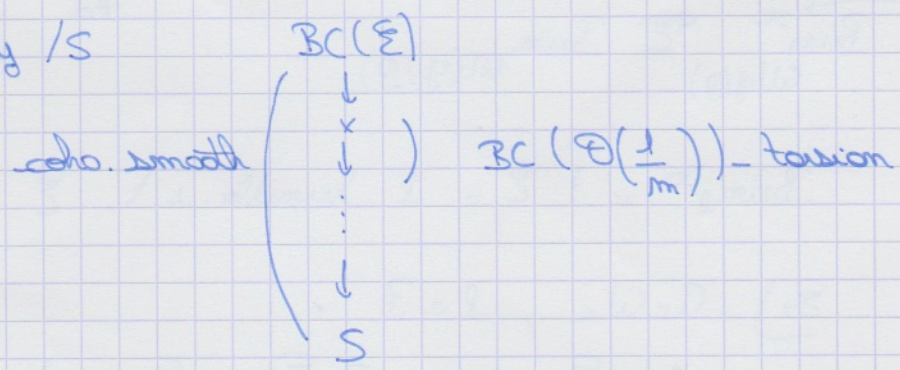 y /S BC(ℰ)
↓
coho. smooth ( × ) BC(𝒪(1/m)) - torsion
↓
⋮
↓
S